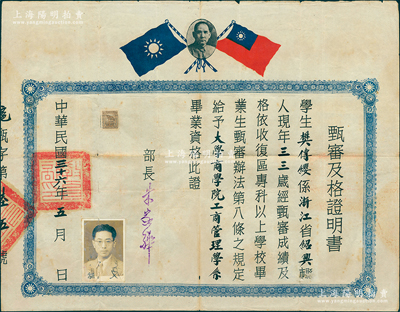 甄審及格證明書
學生樊傳纓係浙江省紹興縣
人現年三三歲經甄審成績及
格依收復區專科以上學校畢
業生甄審辦法第八條之規定
給予大學商學院工商管理學系
畢業資格此證
部長朱家驊
中華民國三十六年五月 日
甄字第
號
上海陽明拍賣